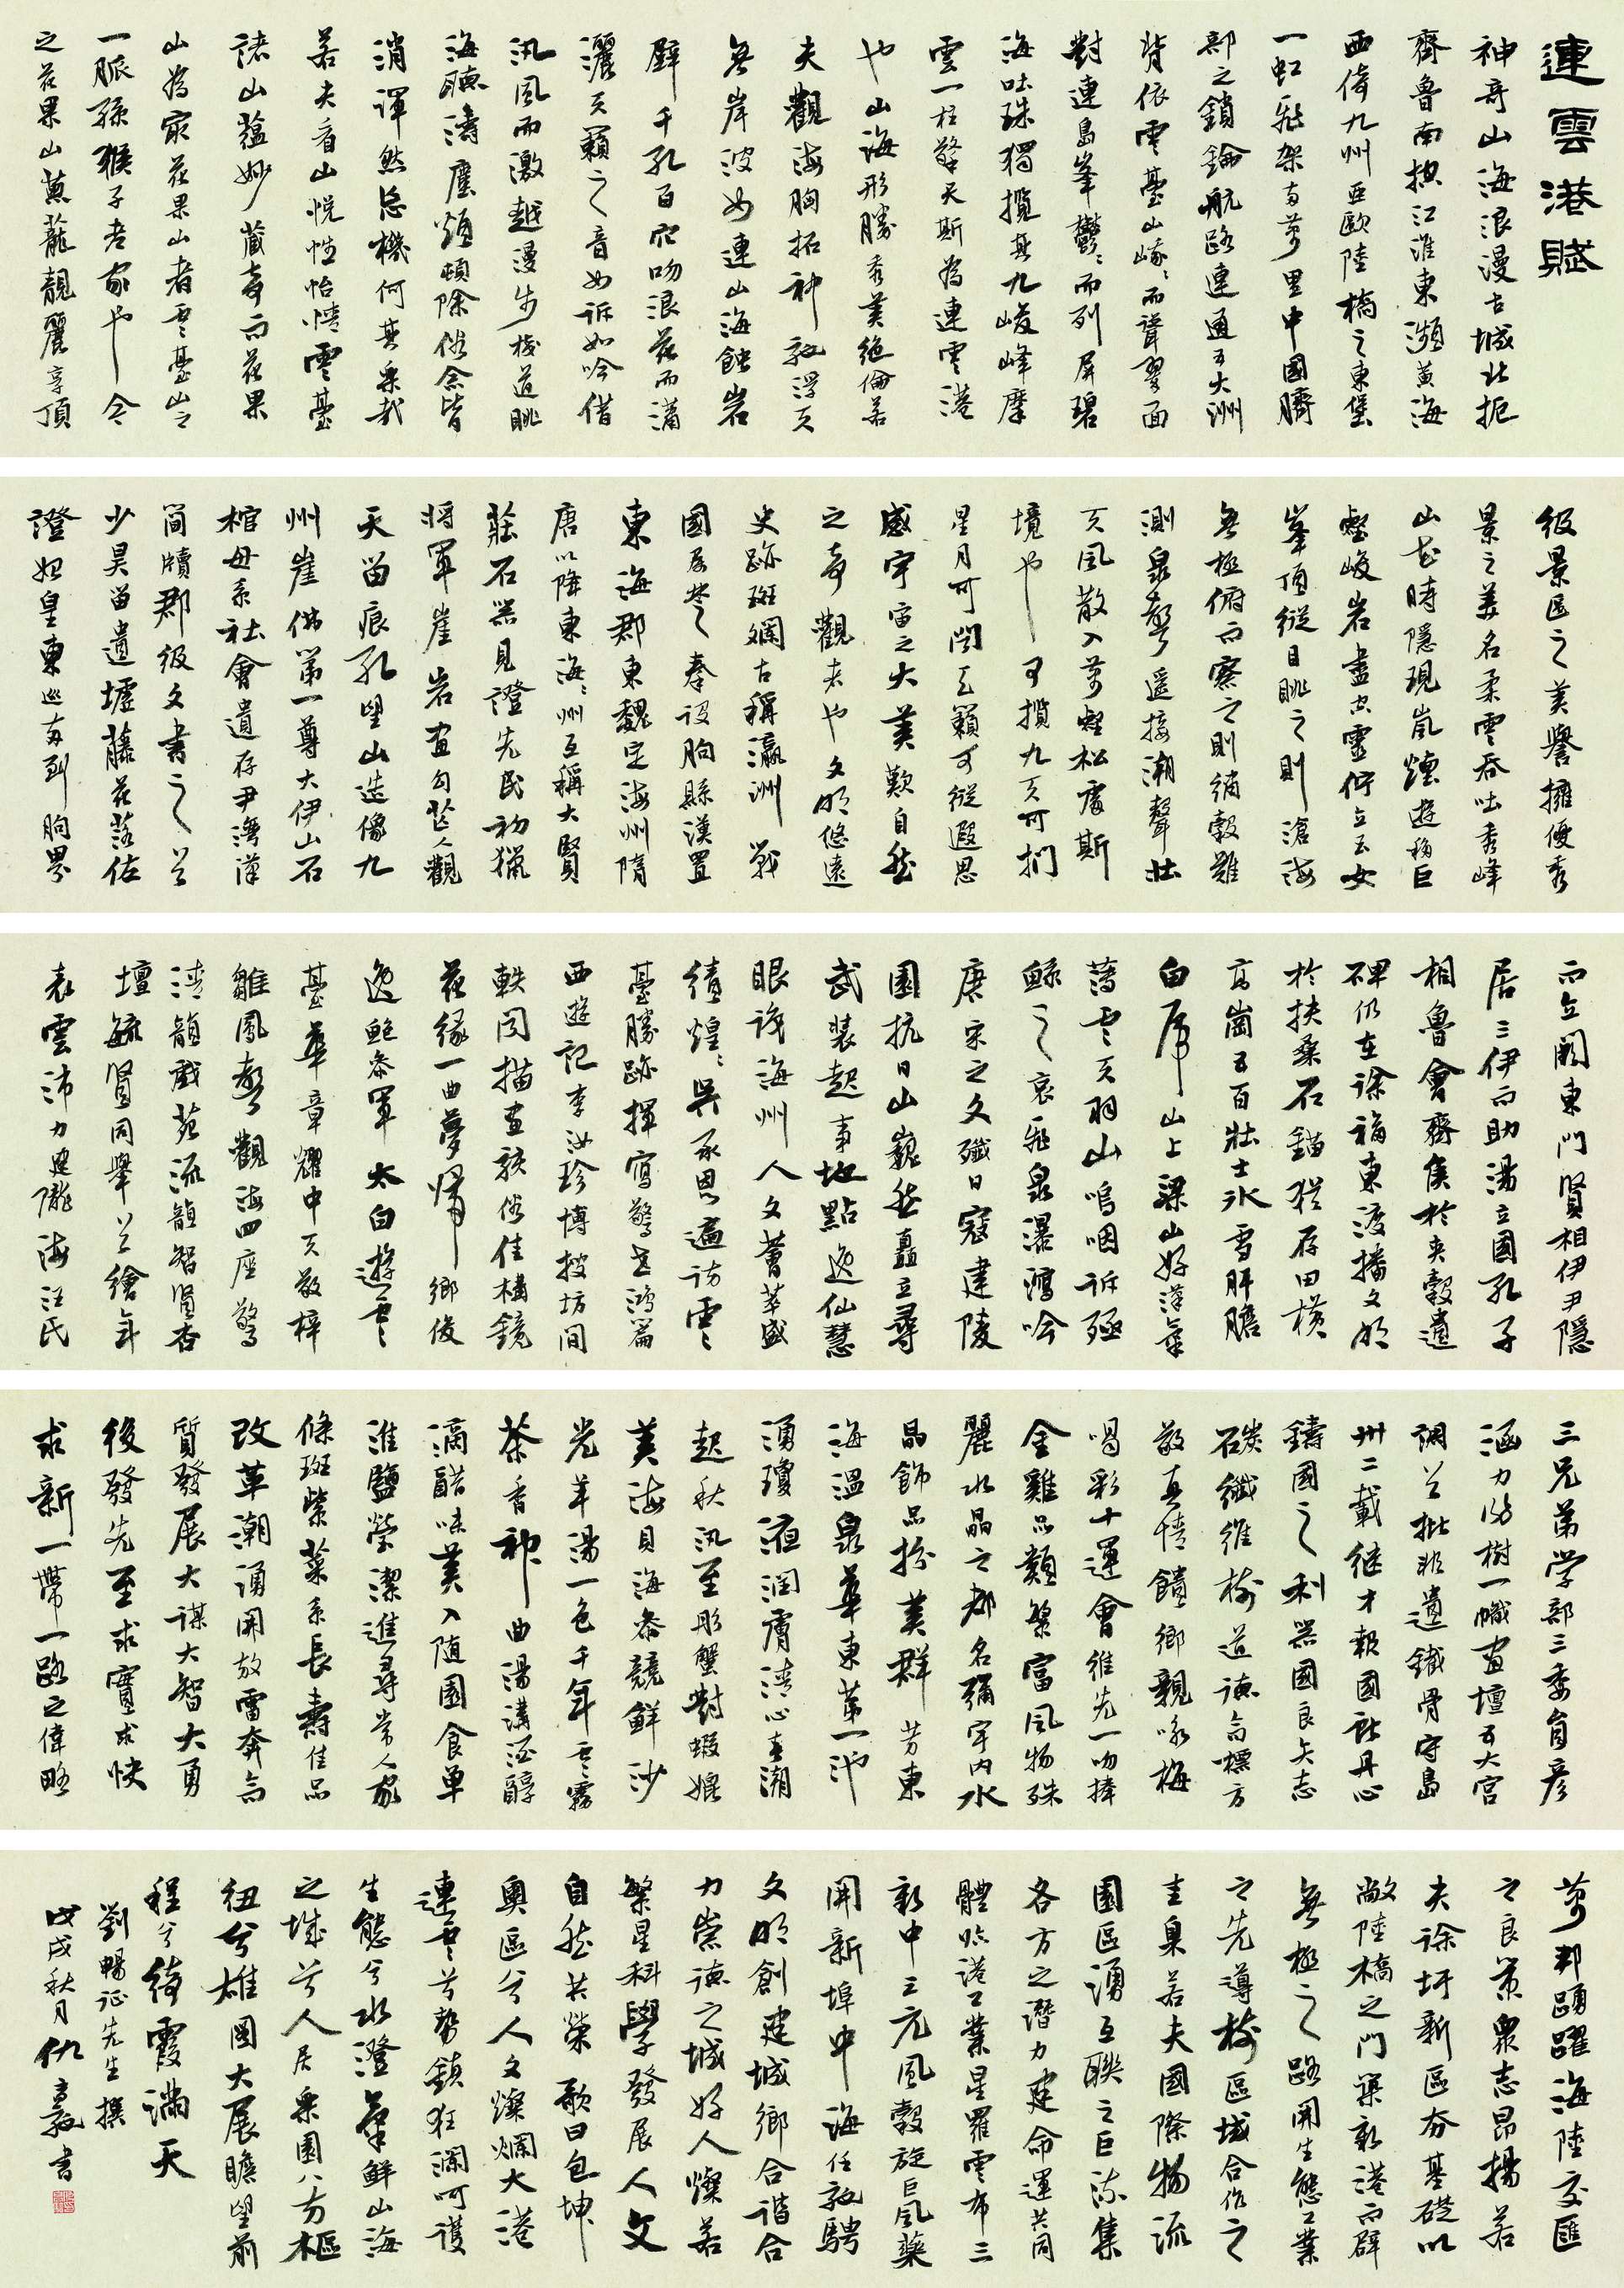 連雲港賦
神奇山海浪漫古城北扼
齊魯南拱江淮東瀕黃海
西倚九州亞歐陸橋之東堡
一虹飛架兩萬里中國臍
部之鎖鑰航路連通五大洲
背依雲臺山峨峨而聳翠面
對連島峯鬱鬱而列屏碧
海吐珠獨攬其九峻峰摩
雲一柱擎天斯為連雲港
也山海形勝秀美絕倫若
夫觀海胸拓神馳浮天
無岸波如連山海蝕岩
壁千孔百穴吻浪花而瀟
灑天籟之音如訴如吟借
汛風而激越漫步棧道眺
海聽濤塵煩頓除俗念皆
消渾然忘機何其樂哉
若夫看山悅性怡情雲臺
諸山蘊妙藏奇而花果
山為最花果山者雲臺山之
一脈孫猴子老家也今
之花果山蔥蘢靚麗享頂
級景區之美譽擁優秀
景之美名柔雲吞吐秀峰
山花時隱現嵐煙遊移巨
壑峻岩盡空靈佇立玉女
峯頂縱目眺之則滄海
無極俯而察之則綃縠難
測泉聲遥接潮聲壯
天風散入萬壑松唐斯
境也可攬九天可捫
星月可聞天籟可縱遐思
感宇宙之大美歎自然
之奇觀夫也文明悠遠
史跡斑斕古稱瀛洲戰
國屬楚秦設朐縣漢置
東海郡東魏定海州隋
唐以降東海海州互稱大賢
莊石器見證先民初獵
將軍崖岩畫勾芒人觀
天留痕孔望山造像九
州崖佛第一尊大伊山石
棺母系社會遺存尹灣漢
簡牘郡級文書之首
少昊留遺墟藤花落佐
證始皇東巡兩到朐界
而立闕東門賢相伊尹隱
居三伊而助湯立國孔子
相魯會齊侯於夾穀遺
碑仍在徐福東渡播文明
於扶桑石錨猶存田橫
高崗五百壯士冰雪肝膽
白虎山上梁山好漢氣
薄雲天羽山嗚咽訴殛
鯀之哀飛泉瀑瀉吟
庚宋之文殲日寇建陵
園抗日山巍然矗立尋
武裝起事地點逸仙慧
眼識海州人文薈萃盛
績煌煌吳承恩遍訪雲
臺勝跡揮寫驚世鴻篇
西遊記李汝珍博搜坊間
軼聞描畫該俗佳構鏡
花緣一曲夢歸鄉俊
逸鮑參軍太白遊雲
臺華章耀中天敬梓
雛鳳聲觀海四座驚
清韻戲苑流韻智賢杏
壇毓賢同舉首繪年
表雲沛力建隴海汪氏
三兄弟学部三委員彦
涵力防樹一幟畫壇五大宮
調首批非遺鐵骨守島
卅二載繼才報國耿丹心
鑄國之利器國良矢志
碳纖維楷道德高標方
敬真情饋鄉親咏梅
喝彩十運會維先一吻捧
金雞品類繁富風物殊
麗水晶之都名彌宇內水
晶飾品扮美群芳東
海溫泉華東第一池
湧瓊液潤膚清心春潮
起秋汛至彤蟹對蝦嬪
美海貝海參競鮮沙
光羊湯一色千年雲霧
茶香神曲湯溝酒醇
滴醋味美入随園食單
淮鹽瑩潔進尋常人家
條斑紫菜系長壽佳品
改革潮湧開放雷奔高
質發展大謀大智大勇
後發先至求實求快
求新一帶一路之偉略
萬邦踴躍海陸交匯
之良策眾志昂揚若
夫徐圩新區夯基礎以
敞陸橋之門築新港而辟
無極之路開生態工業
之先導樹區域合作之
圭臬若夫國際物流
園區湧互聯之巨流集
各方之潛力建命運共同
體臨港工業星羅雲布三
新中三元風穀旋巨風藥
開新埠中海任馳騁
文明創建城鄉合谐合
力崇德之城好人燦若
繁星科學發展人文
自然共榮歌曰乾坤
奧區兮人文燦爛大港
連雲兮勢鎮狂瀾呵護
生態兮水澄氣鮮山海
之城兮人居樂園八方樞
紐兮雄圖大展瞻望前
程兮綺霞滿天
劉暢征先生撰
戊戌秋月仇高馳書